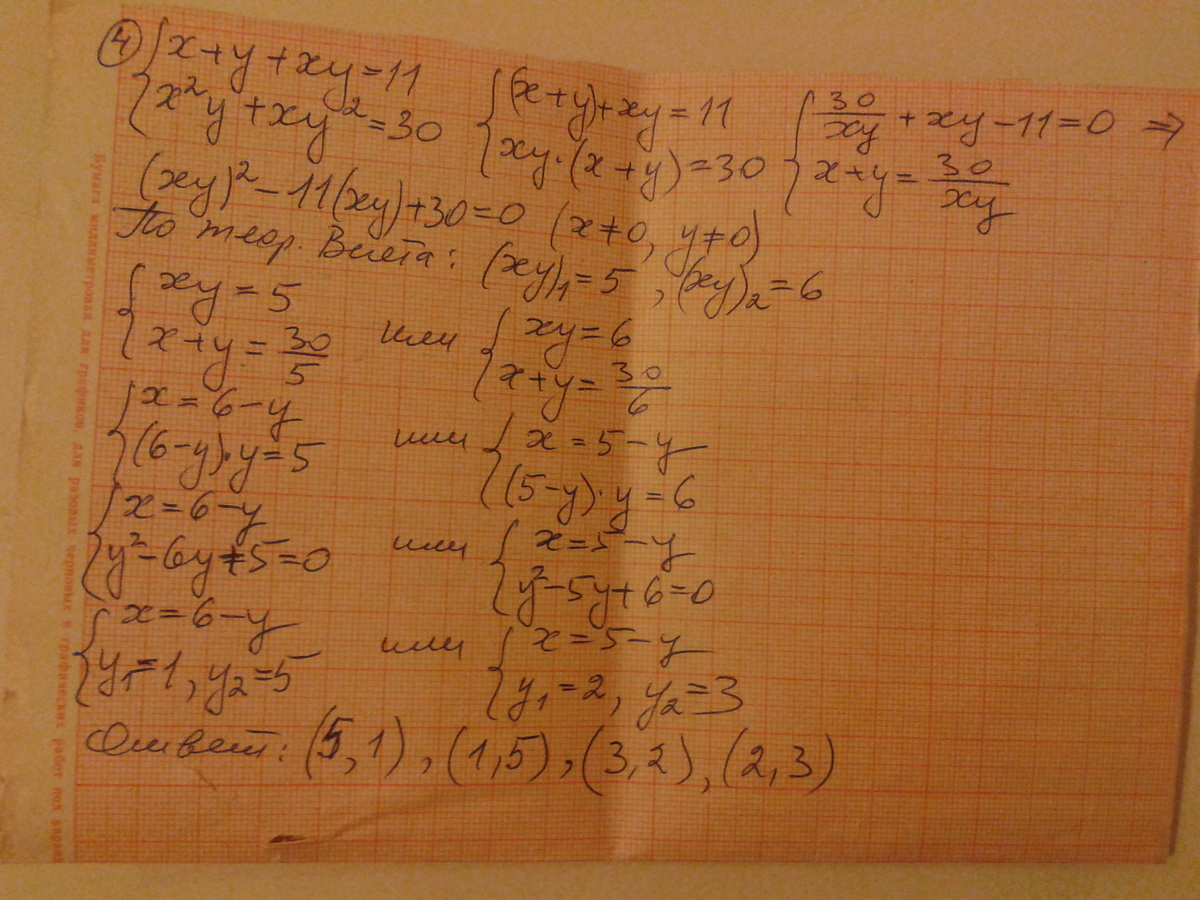 ④ { x+y+xy=11
x²y+xy²=30
{ (x+y)+xy=11
xy·(x+y)=30
{ 30/xy + xy-11=0 ⇒
x+y= 30/xy
(xy)²-11(xy)+30=0 (x≠0, y≠0)
По теор. Виета: (xy)₁=5, (xy)₂=6
{ xy=5
x+y= 30/5
или { xy=6
x+y= 30/6
{ x=6-y
(6-y)·y=5
или { x=5-y
(5-y)·y=6
{ x=6-y
y²-6y+5=0
или { x=5-y
y²-5y+6=0
{ x=6-y
y₁=1, y₂=5
или { x=5-y
y₁=2, y₂=3
Ответ: (5,1), (1,5), (3,2), (2,3)
Бумага масштабно-координатная для графиков, для разовых черновых и графических работ